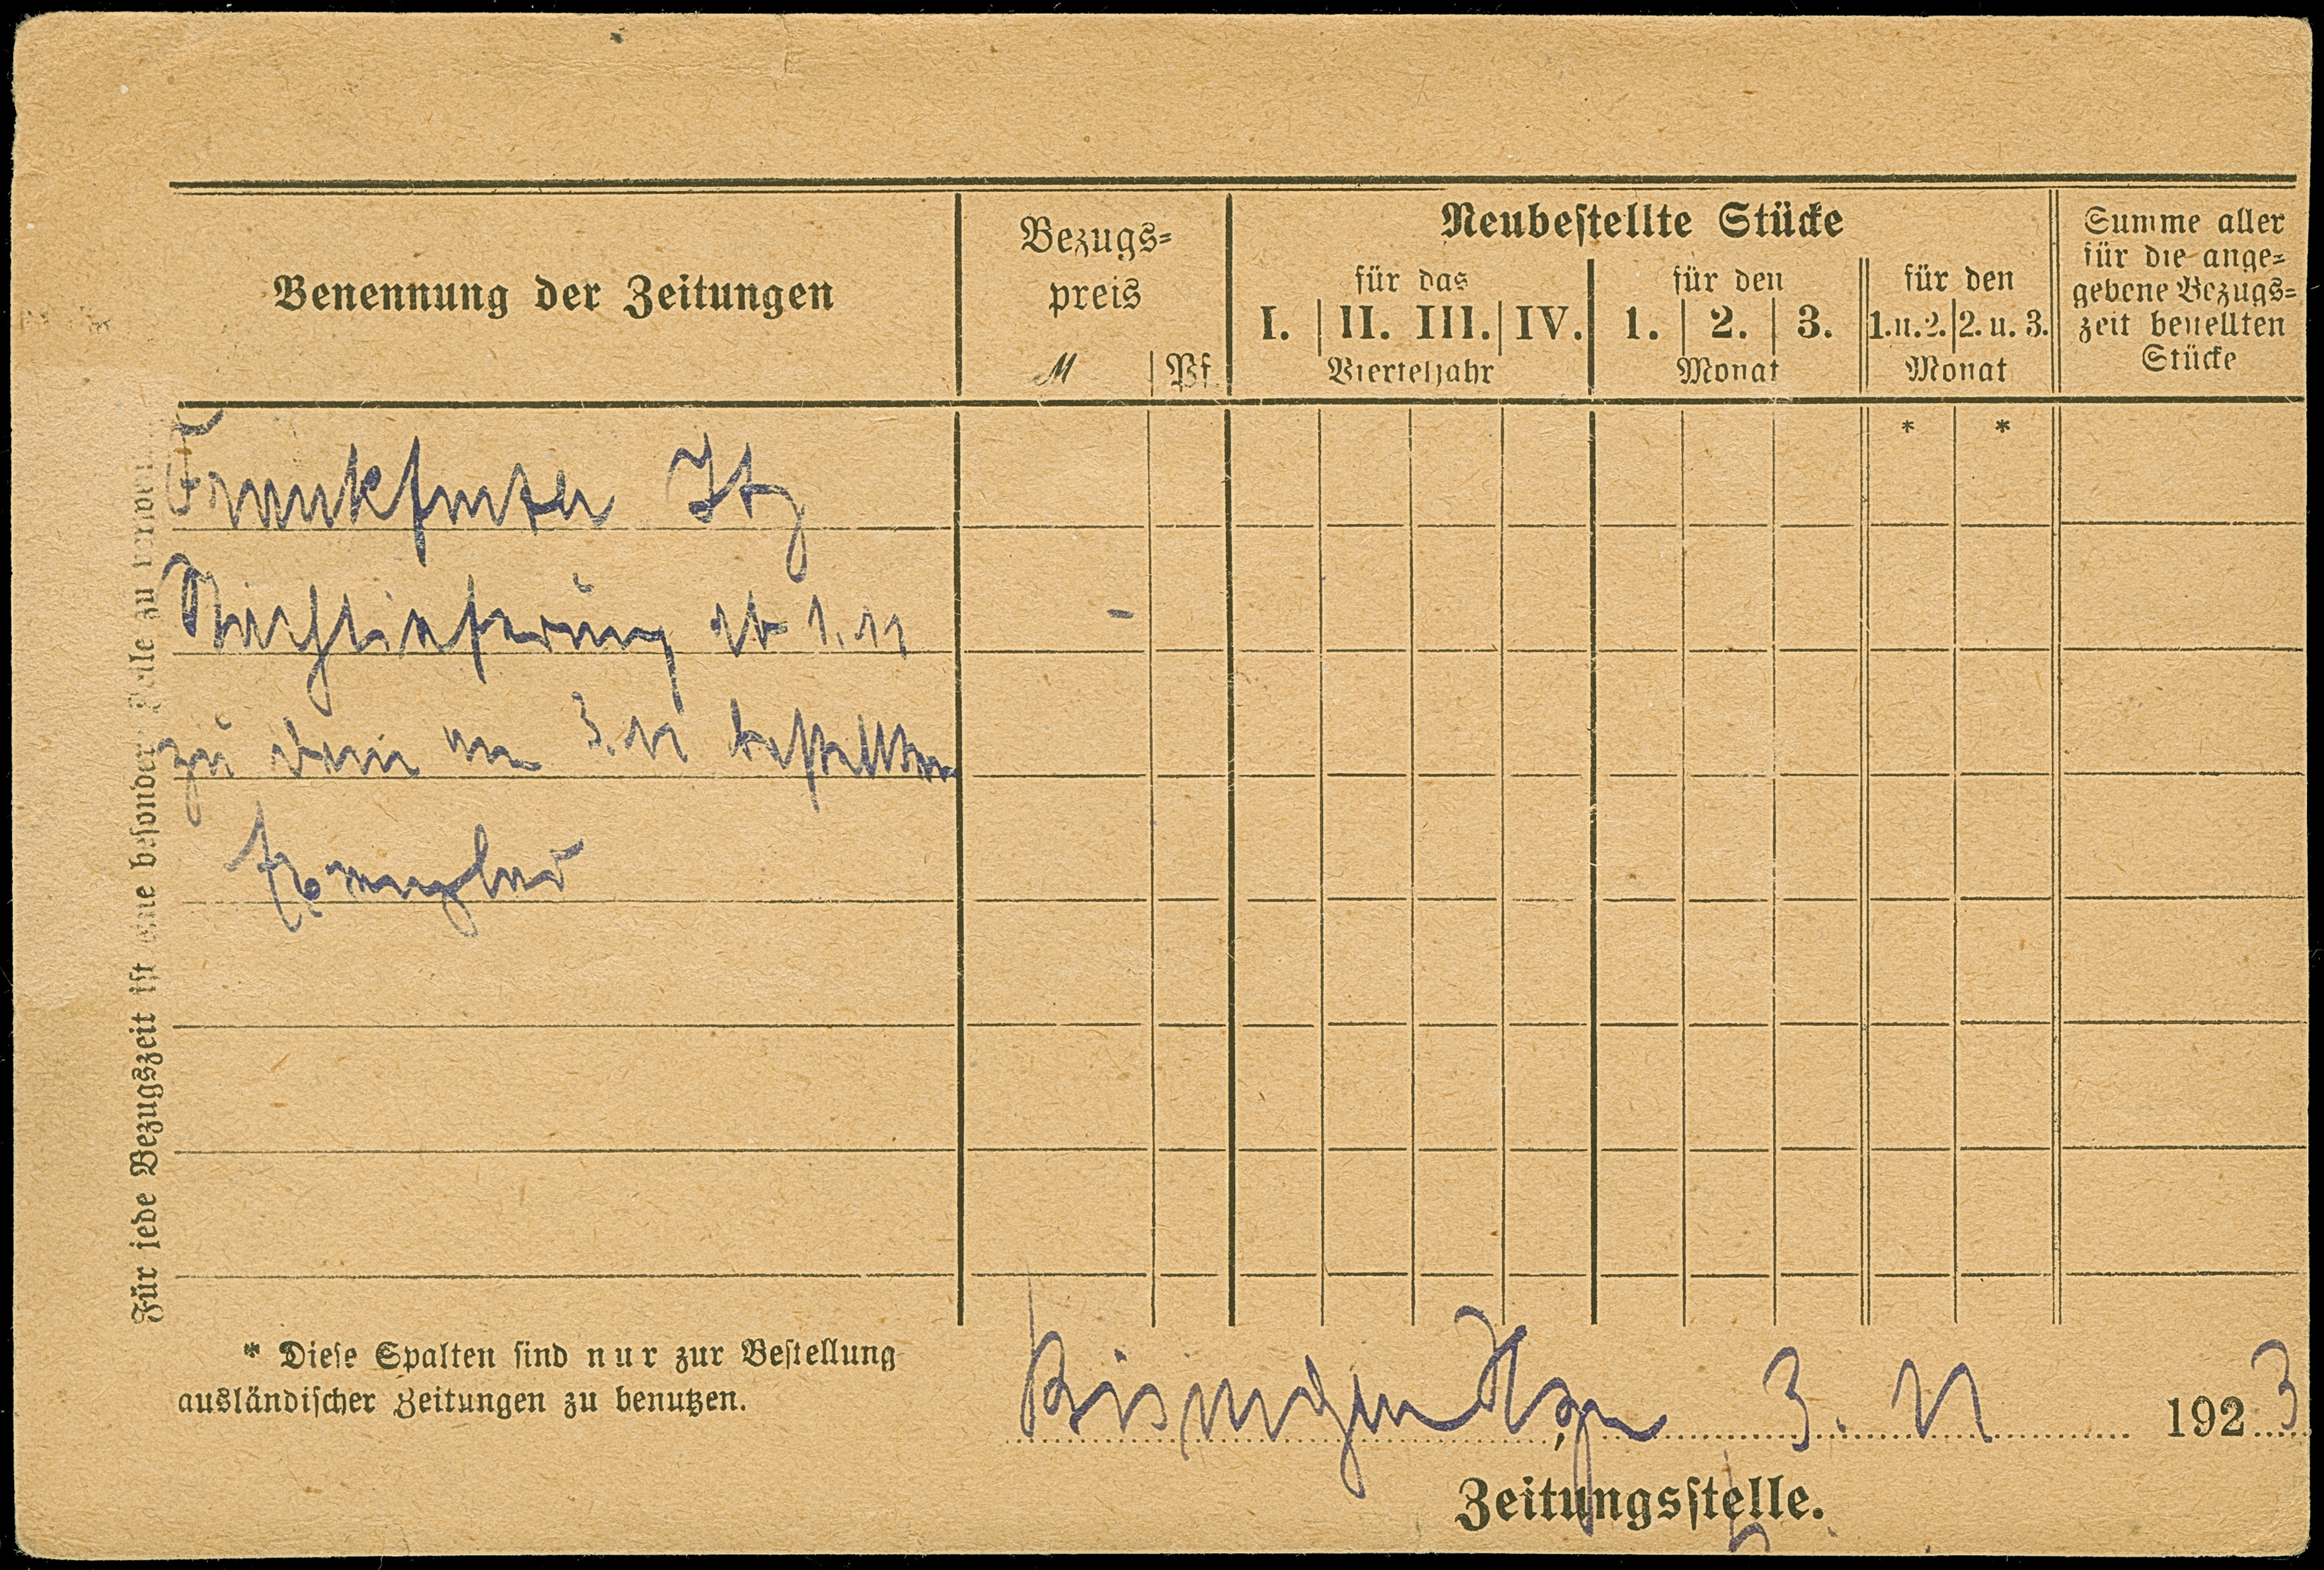 Benennung der Zeitungen
Bezugs=
preis
M Pf
Neubestellte Stücke
für das
I. II. III. IV.
Vierteljahr
für den
1. 2. 3.
Monat
für den
1. u. 2. 2. u. 3.
Monat
Summe aller
für die ange=
gebene Bezugs=
zeit bestellten
Stücke
* *
Frankfurter Ztg
Nachlieferung ab 1.11
zu dem am 3.11 bestellten
Exemplar
Für jede Bezugszeit ist eine besondere Zeile zu
* Diese Spalten sind nur zur Bestellung
ausländischer Zeitungen zu benutzen.
3. 11 1923
Zeitungsstelle.